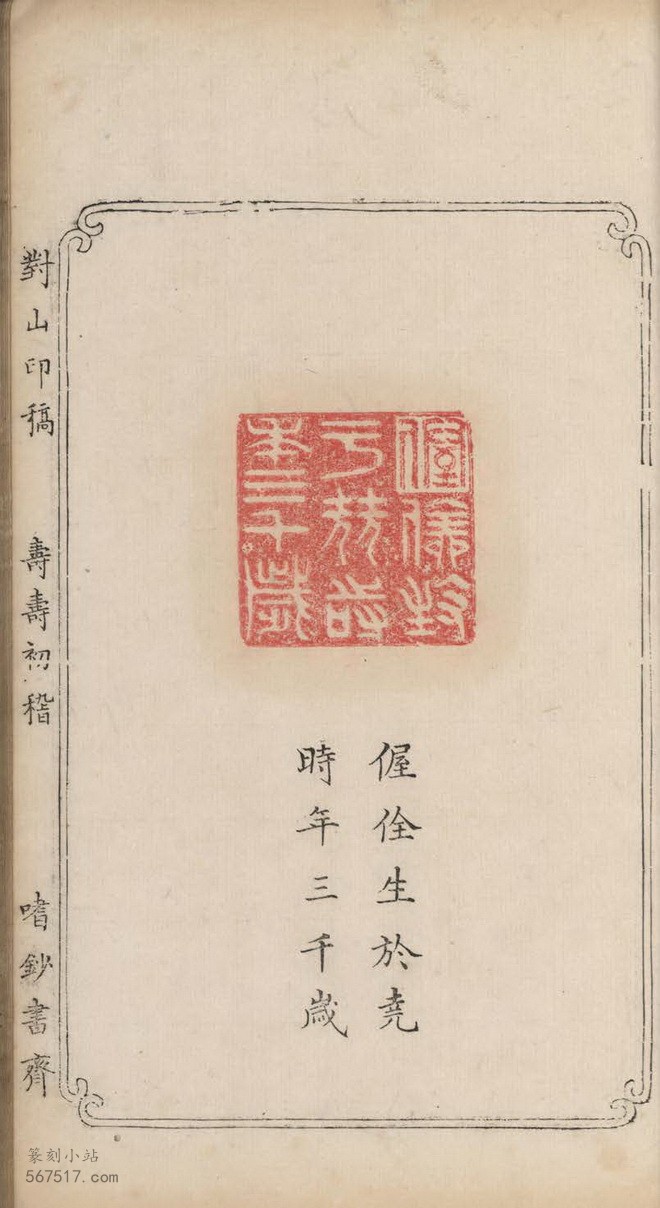 年三千歲
偓佺生於堯
時年三千歲
對山印稿 壽壽初稽 嗜鈔書齋
篆刻小站
567517.com